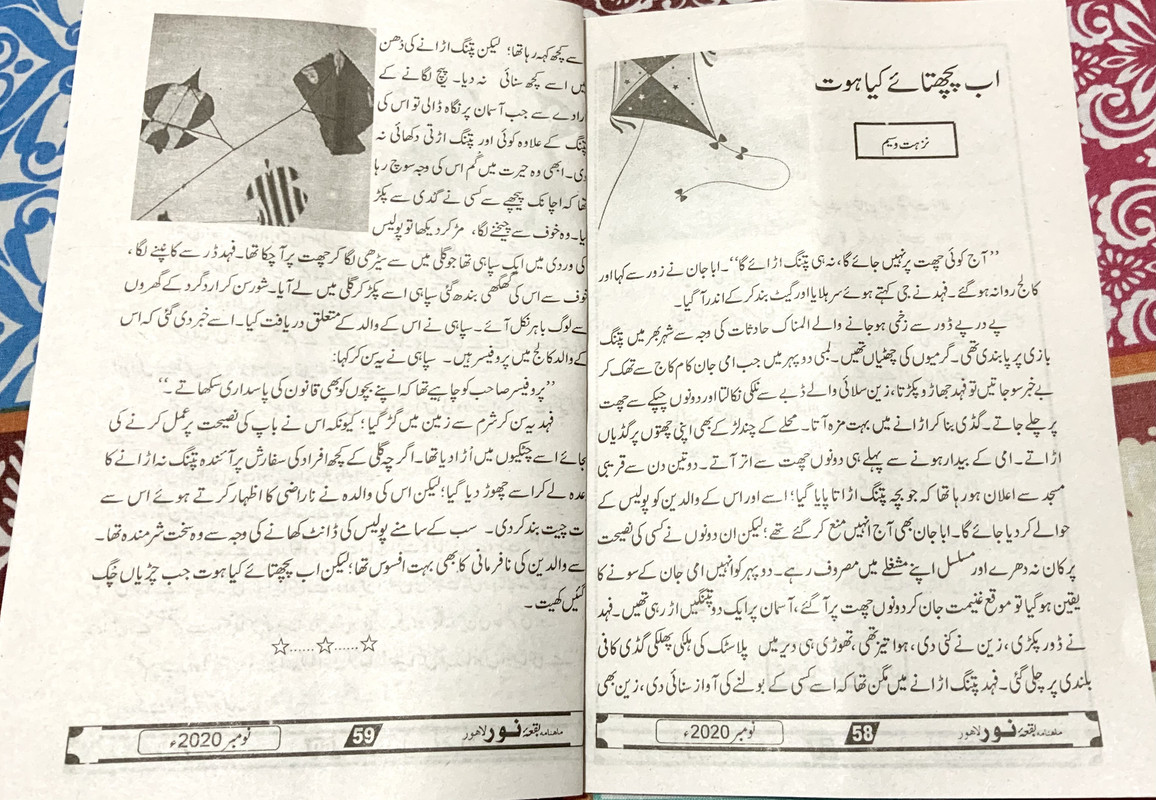 اب پچھتائے کیا ہوت
نزہت وسیم
’’آج کوئی چھت پر نہیں جائے گا، نہ ہی پتنگ اڑائے گا‘‘۔ ابا جان نے زور سے کہا اور
کالج روانہ ہو گئے۔ فہد نے جی کہتے ہوئے سر ہلایا اور گیٹ بند کر کے اندر آ گیا۔
پے در پے ڈور سے زخمی ہو جانے والے المناک حادثات کی وجہ سے شہر بھر میں پتنگ
بازی پر پابندی تھی۔ گرمیوں کی چھٹیاں تھیں۔ لمبی دوپہر میں جب امی جان کام کاج سے تھک کر
بے خبر سو جاتیں تو فہد جھاڑو پکڑتا، زین سلائی والے ڈبے سے نلکی نکالتا اور دونوں چپکے سے چھت
پر چلے جاتے۔ گڈی بنا کر اڑانے میں بہت مزہ آتا۔ محلے کے چند لڑکے بھی اپنی چھتوں پر گڈیاں
اڑاتے۔ امی کے بیدار ہونے سے پہلے ہی دونوں چھت سے اتر آتے۔ دو تین دن سے قریبی
مسجد سے اعلان ہو رہا تھا کہ جو بچہ پتنگ اڑاتا پایا گیا؛ اسے اور اس کے والدین کو پولیس کے
حوالے کر دیا جائے گا۔ ابا جان بھی آج انہیں منع کر گئے تھے؛ لیکن ان دونوں نے کسی کی نصیحت
پر کان نہ دھرے اور مسلسل اپنے مشغلے میں مصروف رہے۔ دوپہر کو انہیں امی جان کے سونے کا
یقین ہو گیا تو موقع غنیمت جان کر دونوں چھت پر آ گئے، آسمان پر ایک دو پتنگیں اڑ رہی تھیں۔ فہد
نے ڈور پکڑی، زین نے کنی دی، ہوا تیز تھی، تھوڑی ہی دیر میں پلاسٹک کی ہلکی پھلکی گڈی کافی
بلندی پر چلی گئی۔ فہد پتنگ اڑانے میں مگن تھا کہ اسے کسی کے بولنے کی آواز سنائی دی، زین بھی
ماہنامہ بقعۂ نور لاہور
58
نومبر 2020ء
سے کچھ کہہ رہا تھا؛ لیکن پتنگ اڑانے کی دُھن
میں اسے کچھ سنائی نہ دیا۔ پیچ لگانے کے
رادے سے جب آسمان پر نگاہ ڈالی تو اس کی
پتنگ کے علاوہ کوئی اور پتنگ اڑتی دکھائی نہ
دی۔ ابھی وہ حیرت میں گم اس کی وجہ سوچ رہا
تھا کہ اچانک پیچھے سے کسی نے گدی سے پکڑ
یا۔ وہ خوف سے چیخنے لگا، مڑ کر دیکھا تو پولیس
کی وردی میں ایک سپاہی تھا جو گلی میں سے سیڑھی لگا کر چھت پر آ چکا تھا۔ فہد ڈر سے کانپنے لگا،
خوف سے اس کی گھگھی بندھ گئی سپاہی اسے پکڑ کر گلی میں لے آیا۔ شور سن کر ارد گرد کے گھروں
سے لوگ باہر نکل آئے۔ سپاہی نے اس کے والد کے متعلق دریافت کیا۔ اسے خبر دی گئی کہ اس
کے والد کالج میں پروفیسر ہیں۔ سپاہی نے یہ سن کر کہا:
’’پروفیسر صاحب کو چاہیے تھا کہ اپنے بچوں کو بھی قانون کی پاسداری سکھاتے۔‘‘
فہد یہ سن کر شرم سے زمین میں گڑ گیا؛ کیونکہ اس نے باپ کی نصیحت پر عمل کرنے کی
بجائے اسے چٹکیوں میں اڑا دیا تھا۔ اگرچہ گلی کے کچھ افراد کی سفارش پر آئندہ پتنگ نہ اڑانے کا
عدہ لے کر اسے چھوڑ دیا گیا؛ لیکن اس کی والدہ نے ناراضی کا اظہار کرتے ہوئے اس سے
ت چیت بند کر دی۔ سب کے سامنے پولیس کی ڈانٹ کھانے کی وجہ سے وہ سخت شرمندہ تھا۔
سے والدین کی نافرمانی کا بھی بہت افسوس تھا؛ لیکن اب پچھتائے کیا ہوت جب چڑیاں چُگ
گئیں کھیت۔
☆......☆......☆
ماہنامہ بقعۂ نور لاہور
59
نومبر 2020ء